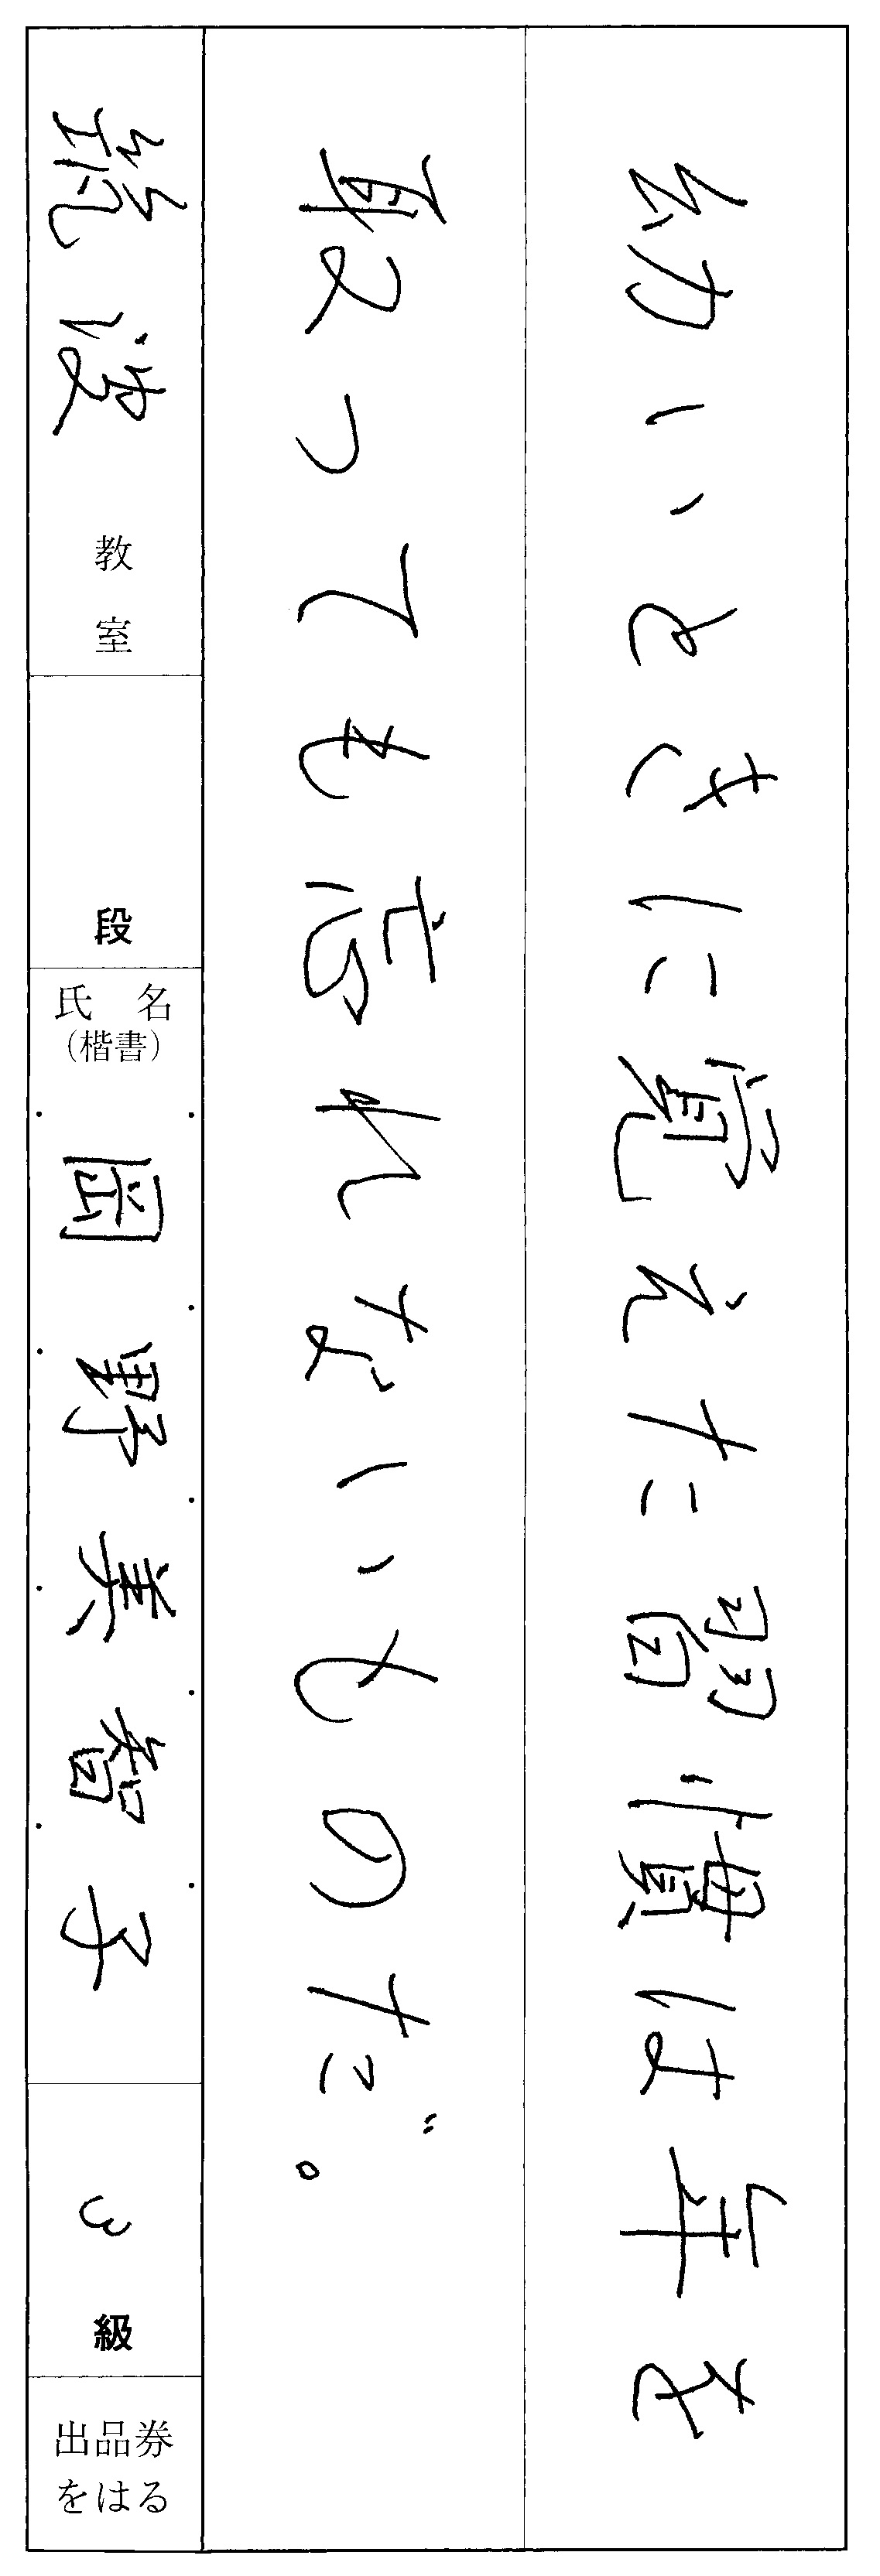 幼いときに覚えた習慣は年を
取っても忘れないものだ。
筑波教室
段
氏名
(楷書)
岡野美智子
3級
出品券
をはる